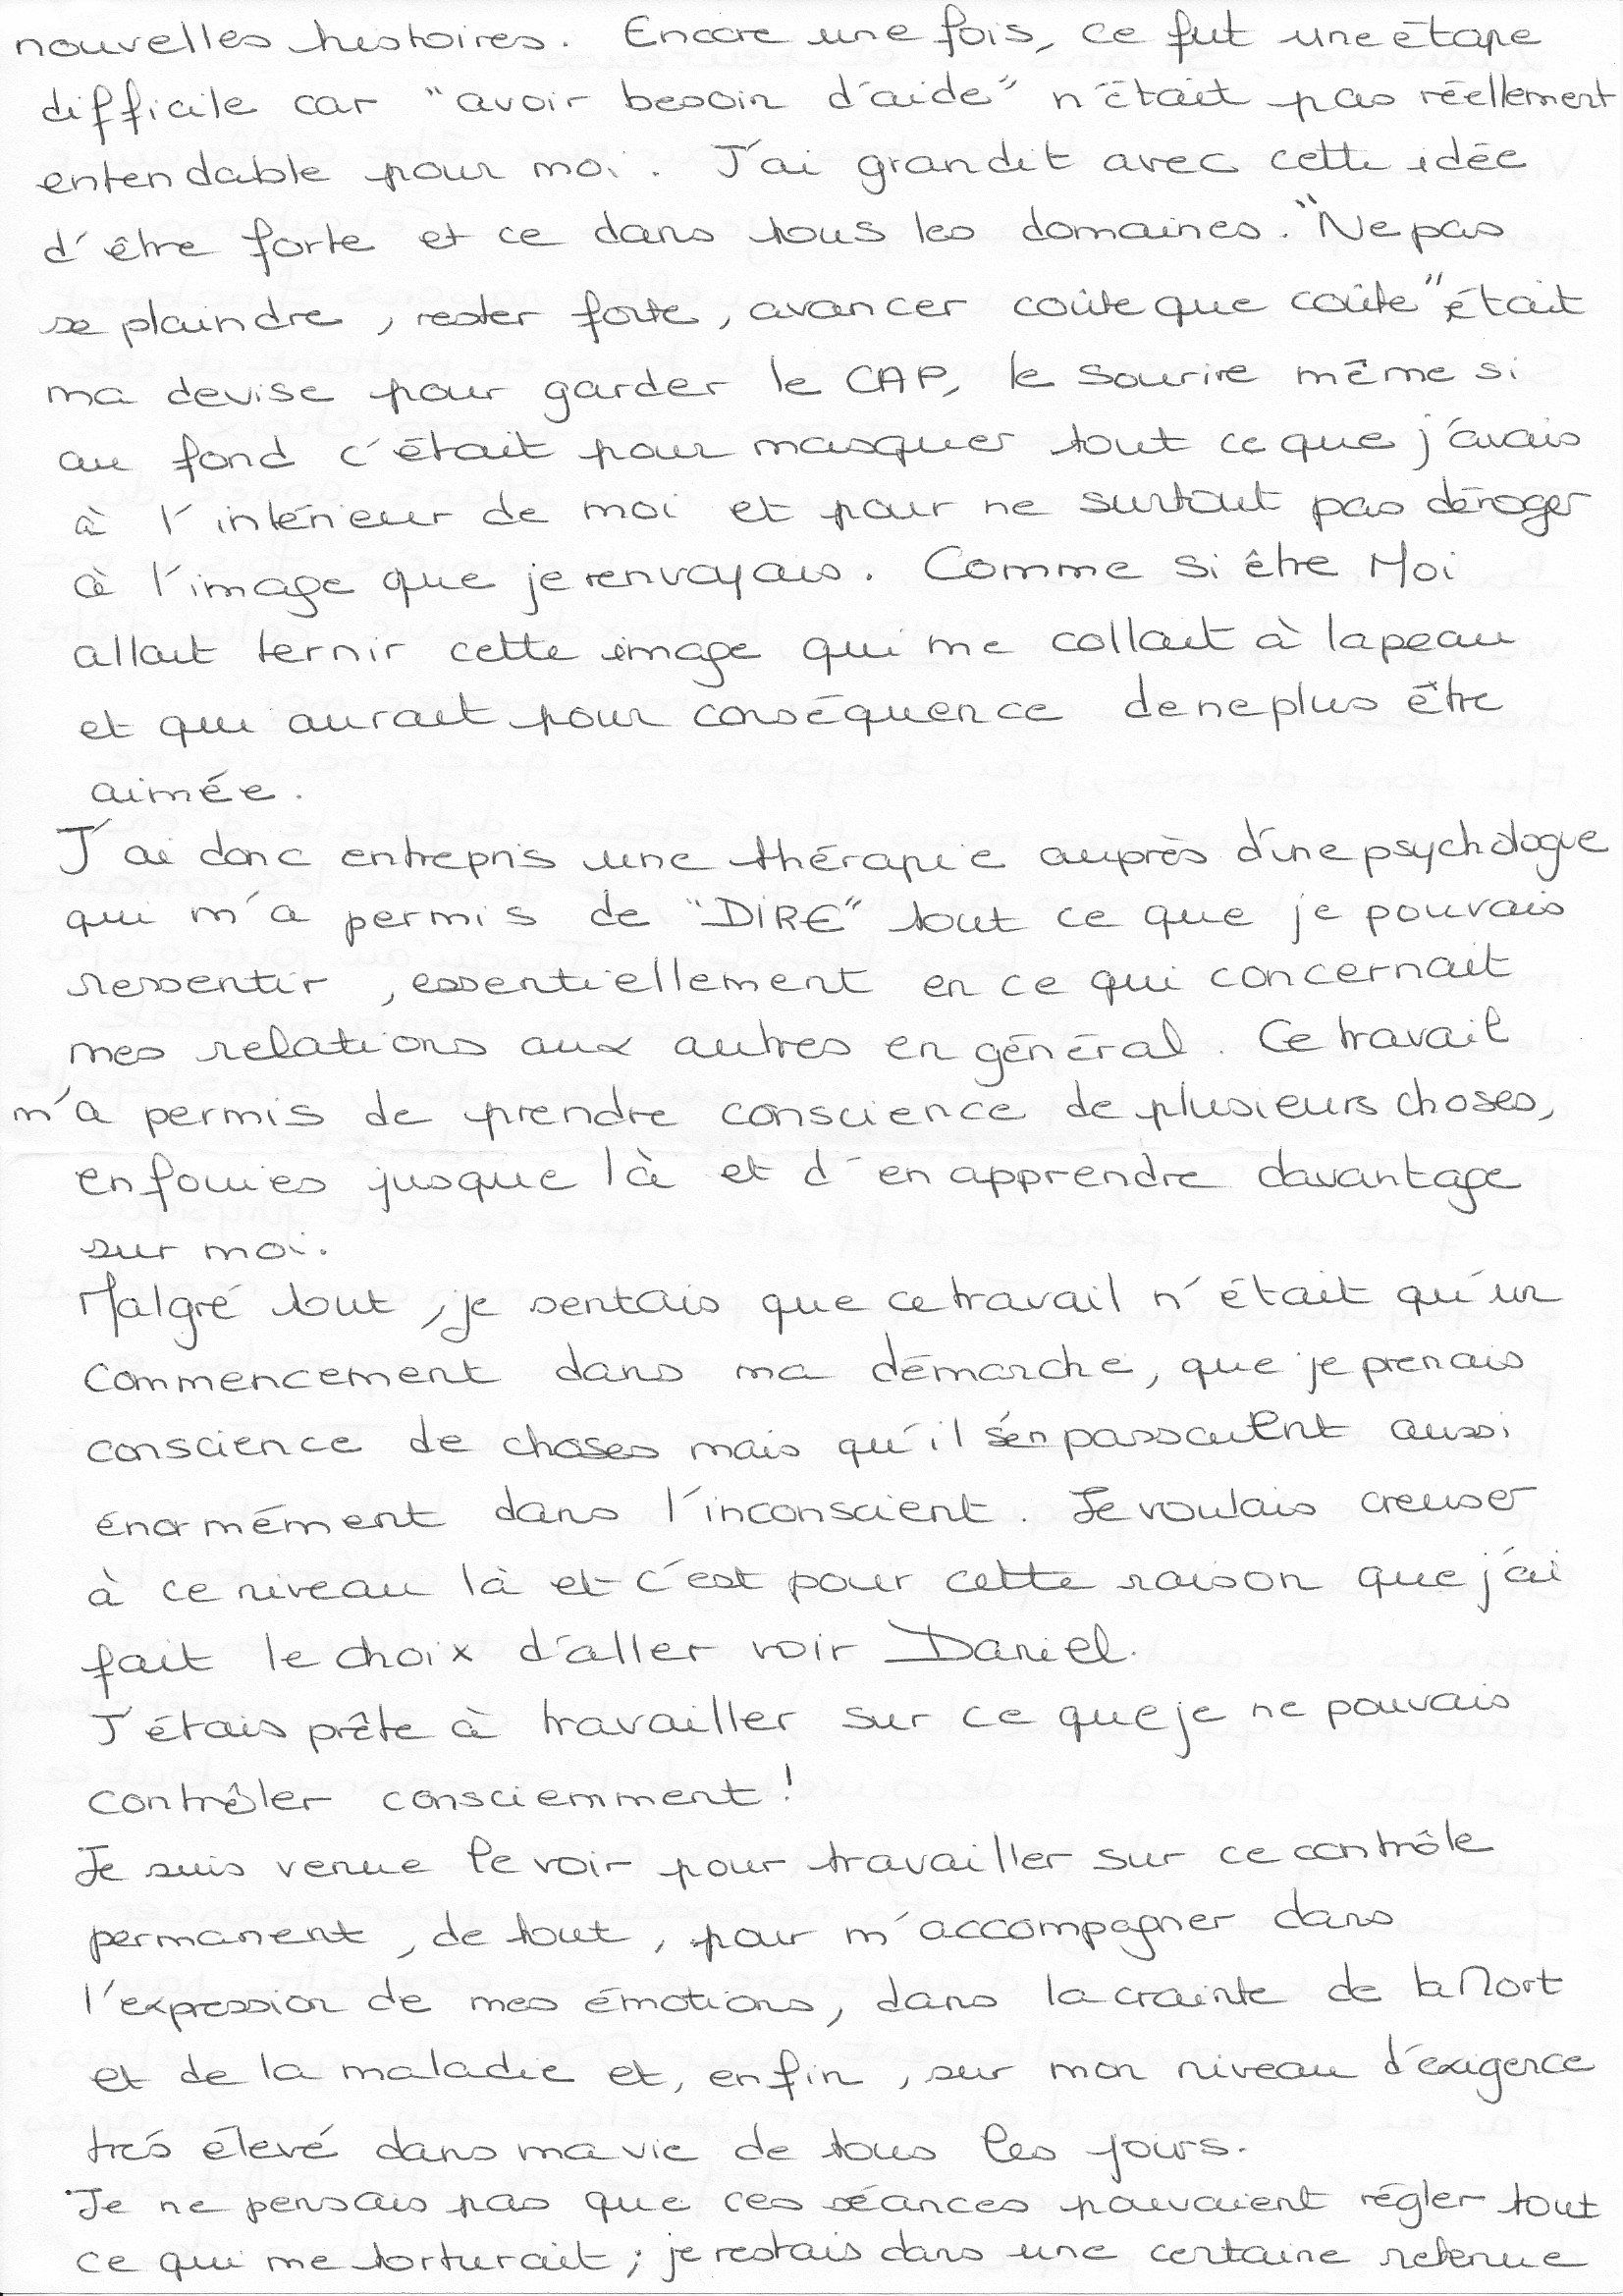 nouvelles histoires. Encore une fois, ce fut une étape
difficile car "avoir besoin d'aide" n'était pas réellement
entendable pour moi. J'ai grandit avec cette idée
d'être forte et ce dans tous les domaines. "Ne pas
se plaindre, rester forte, avancer coûte que coûte" était
ma devise pour garder le CAP, le sourire même si
au fond c'était pour masquer tout ce que j'avais
à l'intérieur de moi et pour ne surtout pas déroger
à l'image que je renvoyais. Comme si être Moi
allait ternir cette image qui me collait à la peau
et qui aurait pour conséquence de ne plus être
aimée.
J'ai donc entrepris une thérapie auprès d'une psychologue
qui m'a permis de "DIRE" tout ce que je pouvais
ressentir, essentiellement en ce qui concernait
mes relations aux autres en général. Ce travail
m'a permis de prendre conscience de plusieurs choses,
enfouies jusque là et d'en apprendre davantage
sur moi.
Malgré tout, je sentais que ce travail n'était qu'un
commencement dans ma démarche, que je prenais
conscience de choses mais qu'il s'en passaient aussi
énormément dans l'inconscient. Je voulais creuser
à ce niveau là et c'est pour cette raison que j'ai
fait le choix d'aller voir Daniel.
J'étais prête à travailler sur ce que je ne pouvais
contrôler consciemment !
Je suis venue le voir pour travailler sur ce contrôle
permanent, de tout, pour m'accompagner dans
l'expression de mes émotions, dans la crainte de la Mort
et de la maladie et, enfin, sur mon niveau d'exigence
très élevé dans ma vie de tous les jours.
Je ne pensais pas que ces séances pouvaient régler tout
ce qui me torturait ; je restais dans une certaine retenue